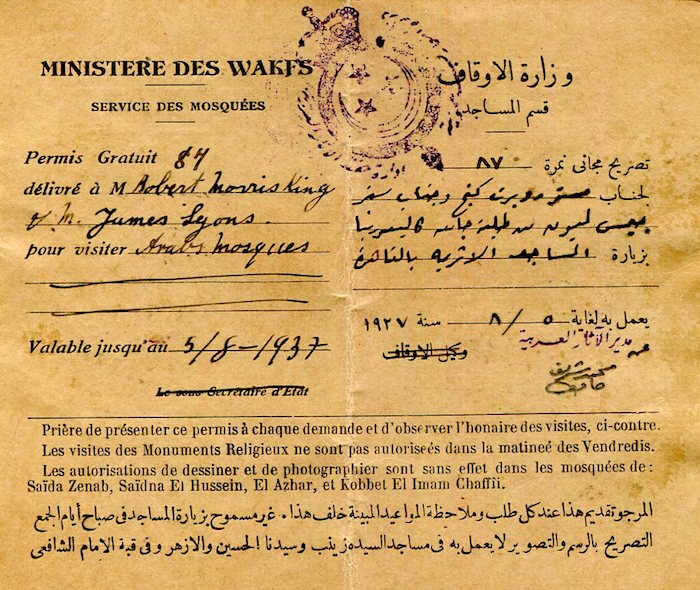 MINISTERE DES WAKFS
SERVICE DES MOSQUÉES
Permis Gratuit 87
délivré à M Robert Morris King
& M. James Lyons.
pour visiter Arabs Mosques
Valable jusqu'au 5/8-1937
Le sous Secrétaire d'Etat
وزارة الاوقاف
قسم المساجد
تصريح مجانى نمرة ٨٧
لجناب مستر روبرت كنج وجناب مستر
جيمس ليون من طلبة جامعة كاليفورنيا
بزيارة المساجد الاثرية بالقاهرة
يعمل به لغاية ٥/٨ سنة ١٩٢٧
مدير الآثار العربية
عن وكيل الاوقاف
Prière de présenter ce permis à chaque demande et d'observer l'honaire des visites, ci-contre.
Les visites des Monuments Religieux ne sont pas autoriseés dans la matineé des Vendredis.
Les autorisations de dessiner et de photographier sont sans effet dans les mosquées de:
Saïda Zenab, Saïdna El Hussein, El Azhar, et Kobbet El Imam Chaffii.
المرجو تقديم هذا عند كل طلب وملاحظة المواعيد المبينة خلف هذا. غير مسموح بزيارة المساجد فى صباح أيام الجمع
التصريح بالرسم والتصوير لا يعمل به فى مساجد السيده زينب وسيدنا الحسين والازهر وفى قبة الامام الشافعى